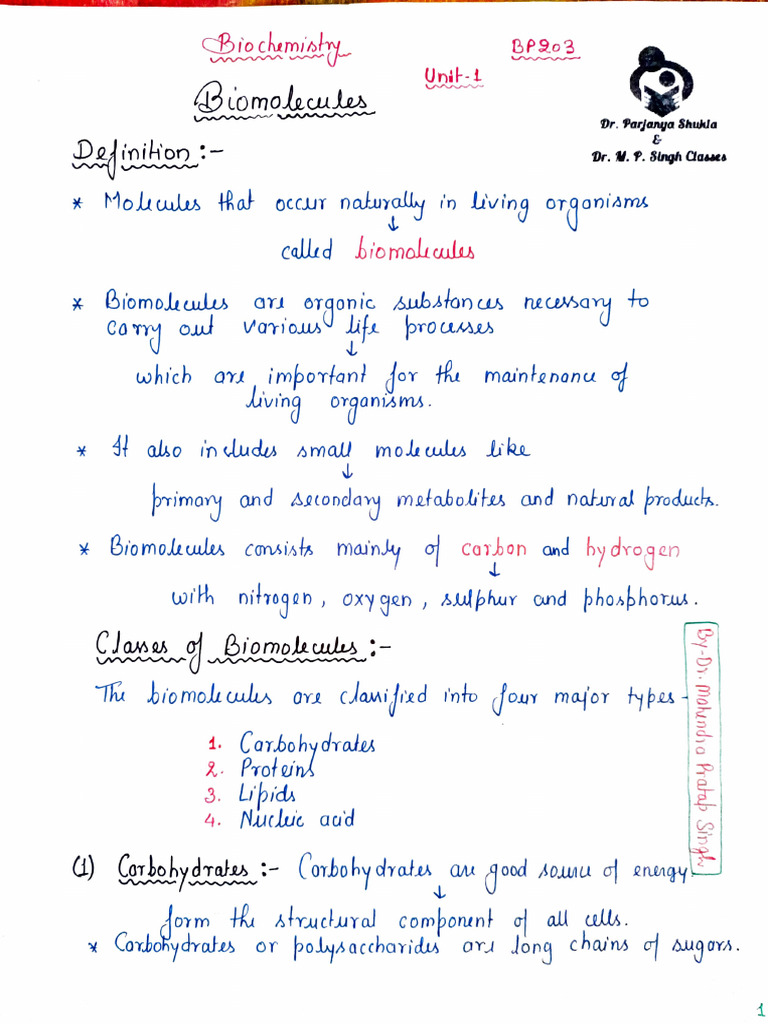 Biochemistry
BP203
Unit-1
Biomolecules
Dr. Parjanya Shukla
&
Dr. M. P. Singh Classes
Definition :-
* Molecules that occur naturally in living organisms
↓
called biomolecules
* Biomolecules are organic substances necessary to
carry out various life processes
↓
which are important for the maintenance of
living organisms.
* It also includes small molecules like
↓
primary and secondary metabolites and natural products.
* Biomolecules consists mainly of carbon and hydrogen
↓
with nitrogen, oxygen, sulphur and phosphorus.
Classes of Biomolecules :-
The biomolecules are classified into four major types-
1. Carbohydrates
2. Proteins
3. Lipids
4. Nucleic acid
By-Dr. Mahendra Pratap Singh
(1) Carbohydrates :- Carbohydrates are good source of energy.
↓
form the structural component of all cells.
* Carbohydrates or polysaccharides are long chains of sugars.
1